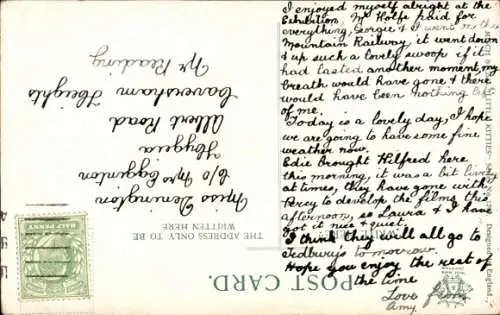 I enjoyed myself alright at the
Exhibition, Mr Rolfe paid for
everything, Georgie & I went on the
Mountain Railway, it went down
& up such a lovely swoop if it
had lasted another moment, my
breath would have gone & there
would have been nothing left
of me.
Today is a lovely day, I hope
we are going to have some fine
weather now.
Edie brought Wilfred here
this morning, it was a bit lively
at times, they have gone with
Percy to develop the films this
afternoon, so Laura & I have
got it nice & quiet.
I think they will all go to
Tedbury's tomorrow.
Hope you enjoy the rest of
the time
Love from
Amy.
POST CARD.
THE ADDRESS ONLY TO BE
WRITTEN HERE
Miss Denington
C/o Mrs Egginton
Hygeia
Albert Road
Caversham Heights
Nr Reading
HALF PENNY